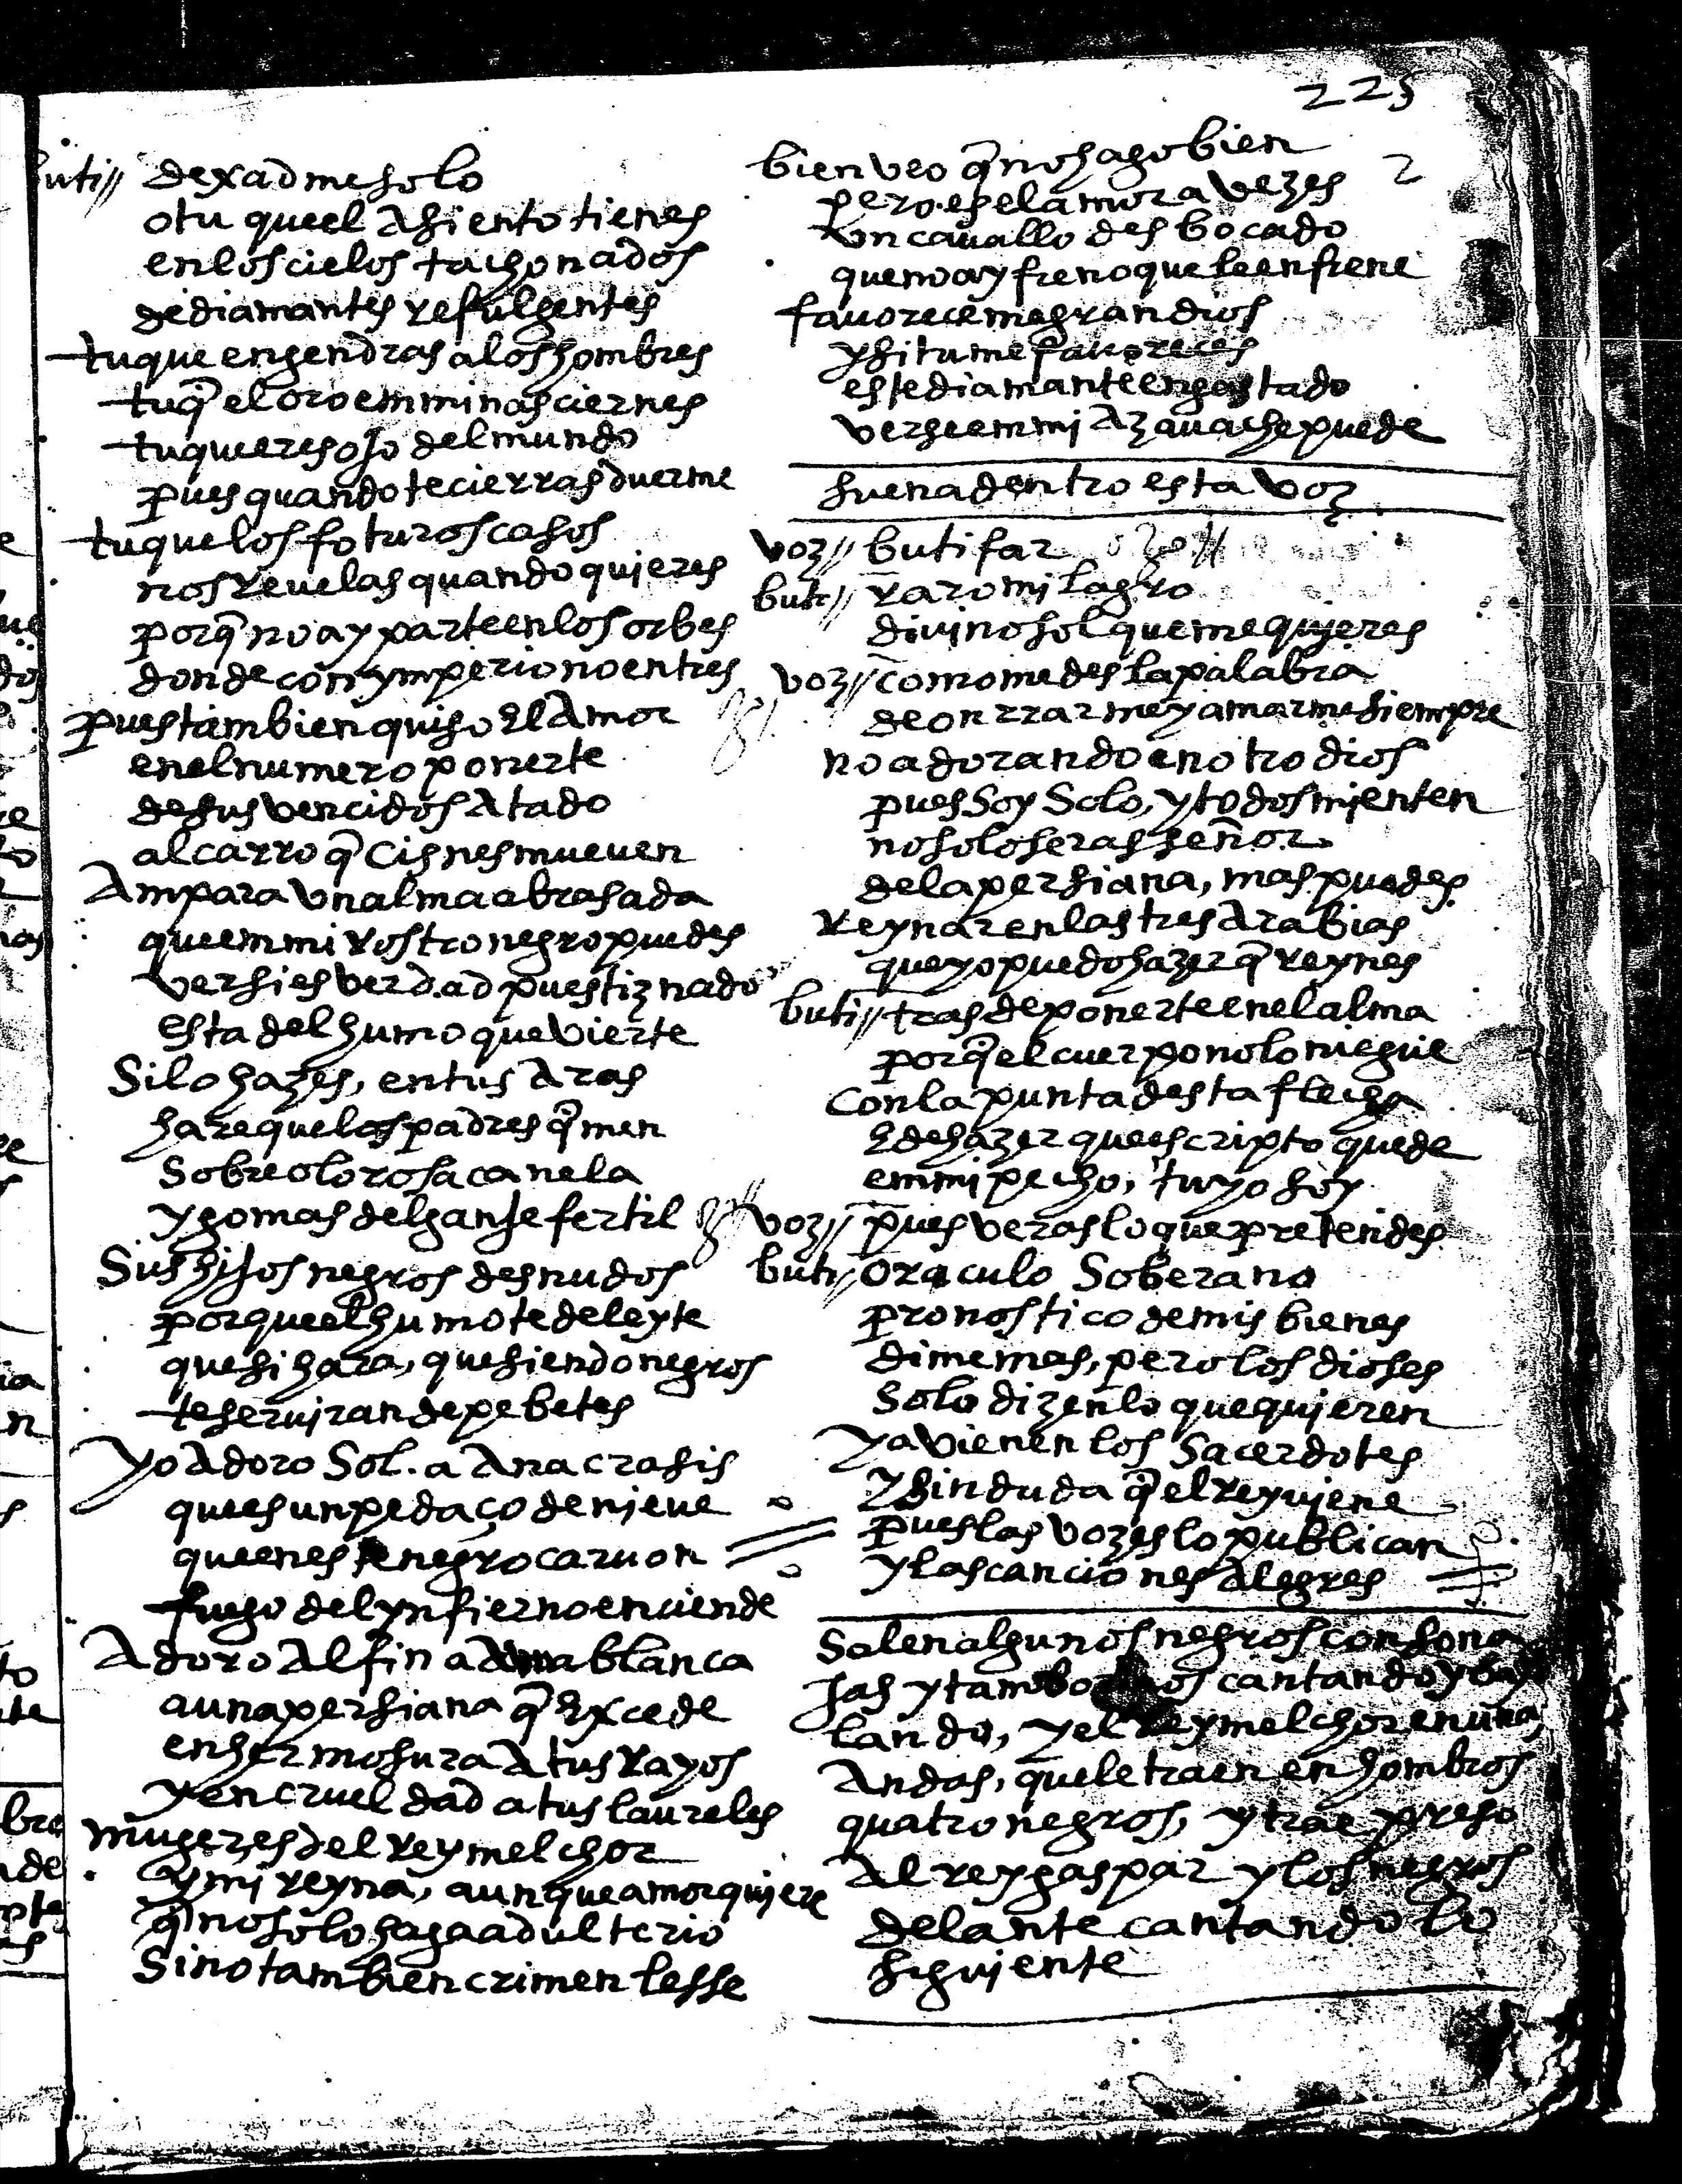 225
2
buti// dexadme solo
o tu que el Asiento tienes
en los cielos tachonados
de diamantes refulgentes
tu que engendras a los hombres
tu q̃ el oro em minas ciernes
tu que eres ojo del mundo
pues quando te cierras duerme
tu que los foturos casos
nos revelas quando quieres
porq̃ no ay parte en los orbes
donde con ymperio no entres
pues tambien quiso El Amor
en el numero ponerte
de sus vencidos Atado
al carro q̃ Cisnes mueuen
Ampara vn alma abrasada
que em mi rostro negro puedes
ver si es verdad pues tiznado
esta del humo que vierte
Si lo hazes, en tus Aras
hare que los padres q̃men
Sobre olorosa canela
y gomas del ganje fertil
Sus hijos negros desnudos
porque el humo te deleyte
que si hara, que siendo negros
te seruiran de pebetes
Yo Adoro Sol. a Anacrasis
que es un pedaço de nieue
que en este negro caruon
fuego del ynfierno enciende
Adoro Al fin a Ana blanca
a una persiana q̃ Excede
en hermosura A tus Rayos
y en crueldad a tus laureles
mugeres del Rey melchor
y mi reyna, aunque amor quiere
q̃ no solo haga adulterio
Sino tambien crimen lesse
bien veo q̃ no hago bien
pero es el amor a vezes
vn cauallo desbocado
que no ay freno que le enfrene
fauoreceme gran dios
y si tu me fauoreces
este diamante engastado
verse em mi Azauache puede
suena dentro esta voz
voz// butifar
buti// raro milagro
diuino sol que me quieres
voz// como me des la palabra
de onrrarme y amarme siempre
no adorando en otro dios
pues Soy Solo, y todos mienten
no solo seras señor
de la persiana, mas puedes
Reynar en las tres Arabias
que yo puedo hazer q̃ reynes
buti// tras de ponerte en el alma
porq̃ el cuerpo no lo niegue
Con la punta desta flecha
E de hazer que escripto quede
em mi pecho, tuyo soy
voz// pues veras lo que pretendes
buti// Oraculo Soberano
pronostico de mis bienes
dime mas, pero los dioses
Solo dizen lo que quieren
Ya vienen los Sacerdotes
Y sin duda q̃ el Rey viene
pues las vozes lo publican
y las canciones Alegres
Salen algunos negros con sona
jas y cantando y bay
lando, y el Rey melchor en unas
Andas, que le traen en hombros
quatro negros, y trae preso
Al rey gaspar y los negros
delante cantando lo
siguiente